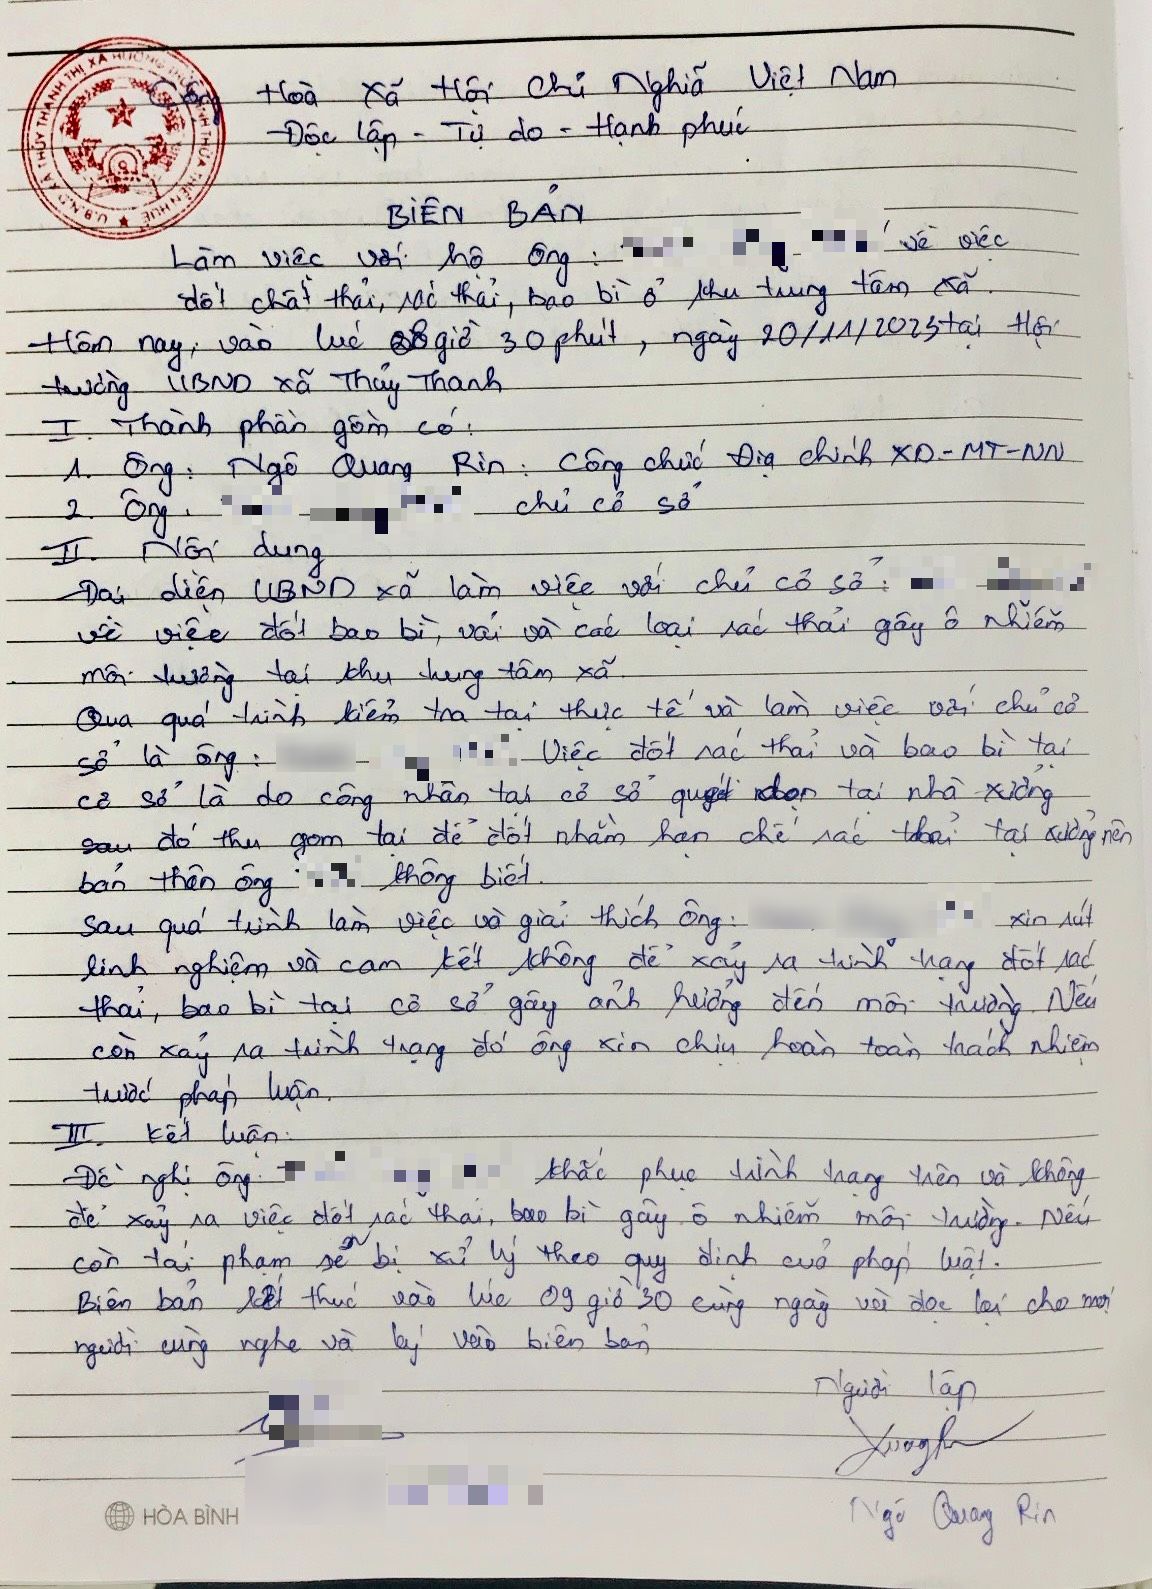 Cộng Hoà Xã Hội Chủ Nghĩa Việt Nam
Độc lập - Tự do - Hạnh phúc
U.B.N.D XÃ THỦY THANH THỊ XÃ HƯƠNG THỦY TỈNH THỪA THIÊN HUẾ
BIÊN BẢN
Làm việc với hộ Ông: về việc
đốt chất thải, rác thải, bao bì ở khu trung tâm xã.
Hôm nay, vào lúc 08 giờ 30 phút, ngày 20/11/2023 tại Hội
trường UBND xã Thủy Thanh
I. Thành phần gồm có:
1. Ông: Ngô Quang Rin: Công chức Địa chính XD-MT-NN
2. Ông: chủ cơ sở
II. Nội dung
Đại diện UBND xã làm việc với chủ cơ sở:
về việc đốt bao bì, vải và các loại rác thải gây ô nhiễm
môi trường tại khu trung tâm xã.
Qua quá trình kiểm tra tại thực tế và làm việc với chủ cơ
sở là ông: Việc đốt rác thải và bao bì tại
cơ sở là do công nhân tại cơ sở quét dọn tại nhà xưởng
sau đó thu gom tại để đốt nhằm hạn chế rác thải tại xưởng nên
bản thân ông không biết.
Sau quá trình làm việc và giải thích Ông: xin rút
kinh nghiệm và cam kết không để xảy ra trình trạng đốt rác
thải, bao bì tại cơ sở gây ảnh hưởng đến môi trường. Nếu
còn xảy ra trình trạng đó ông xin chịu hoàn toàn trách nhiệm
trước pháp luận.
III. Kết luận:
Đề nghị ông khắc phục trình trạng trên và không
để xảy ra việc đốt rác thải, bao bì gây ô nhiễm môi trường. Nếu
còn tái phạm sẽ bị xử lý theo quy định của pháp luật.
Biên bản kết thúc vào lúc 09 giờ 30 cùng ngày và đọc lại cho mọi
người cùng nghe và ký vào biên bản
Người lập
Ngô Quang Rin
HÒA BÌNH